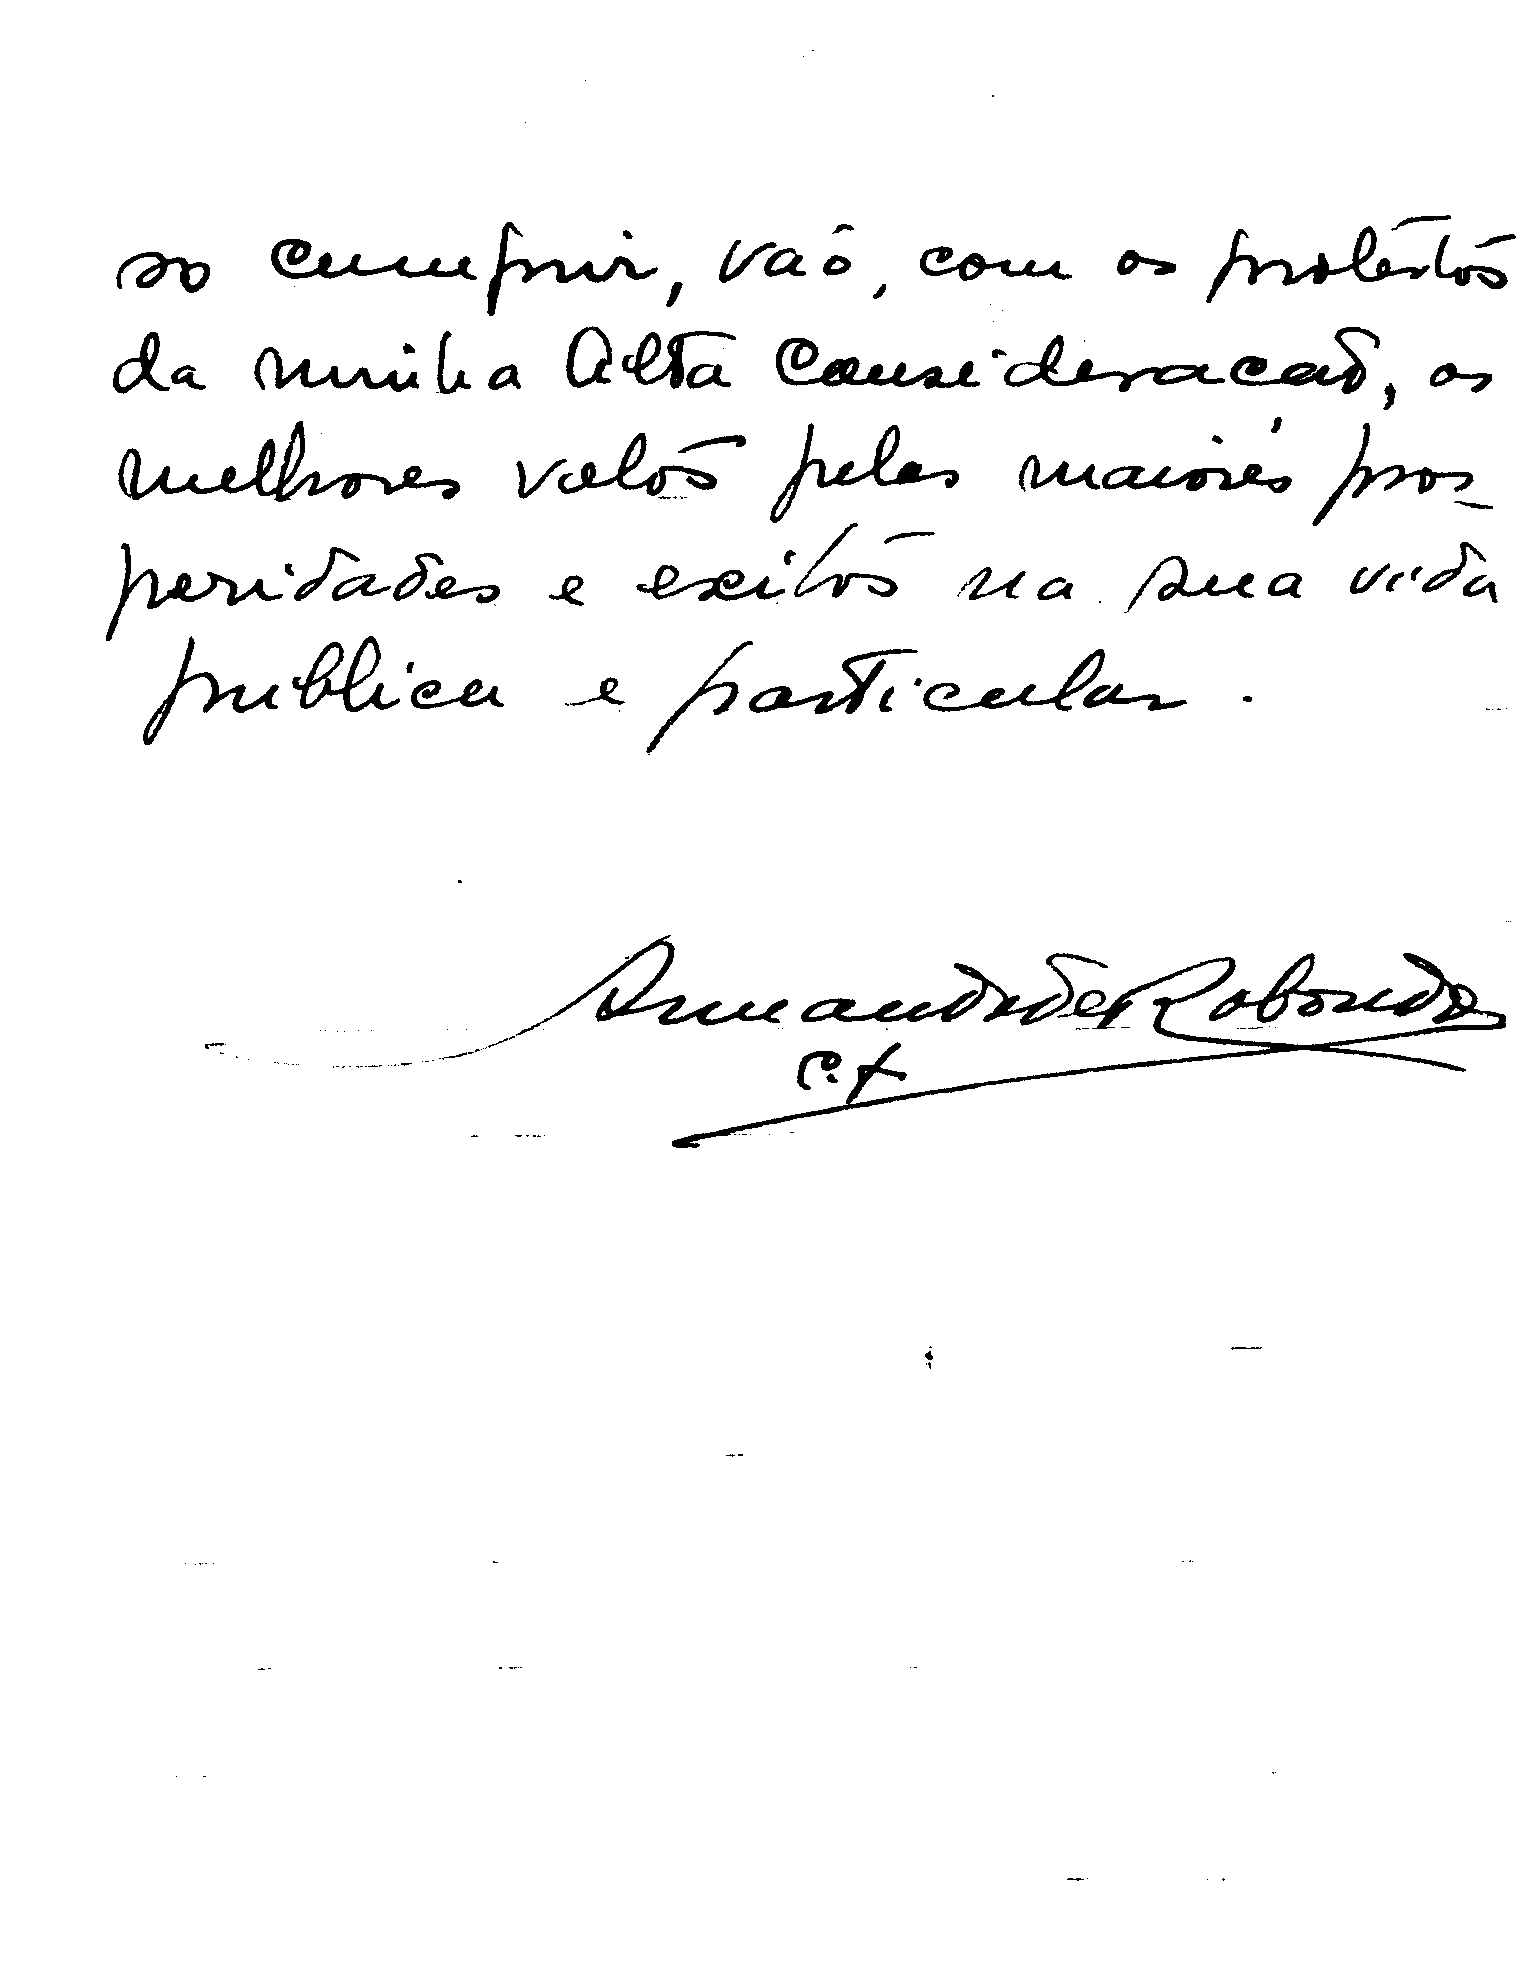 so cumprir, vaõ, com os protestos
da minha Alta Consideracaõ, os
melhores votos pelas maiores pros-
peridades e exitos na sua vida
publica e particular.
Armando de Roboredo